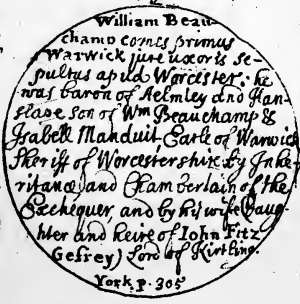 William Beau-
champ comes primus
Warwick jure uxoris se-
pultus apud Worcester: he
was baron of Aelmley and Han-
slape son of Wm Beauchamp &
Isabell Manduit, Earle of Warwick
Sheriff of Worcestershire by Inhe-
ritance and Chamberlain of the
Exchequer, and by his wife Daug-
hter and heire of Iohn Fitz
Gefrey) Lord of Kirtling.
York p. 305